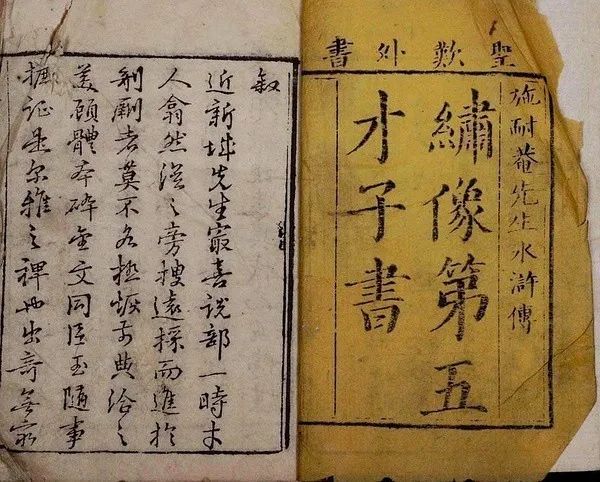 聖歎外書
施耐菴先生水滸傳
繡像第五
才子書
敘
近新城先生㝡喜說部一時才
人翕然從之旁搜遠採而進於
剞劂者莫不各極典給之
美顧體本碎金文同玉隨事
証是尔雅之裨也出奇無窮